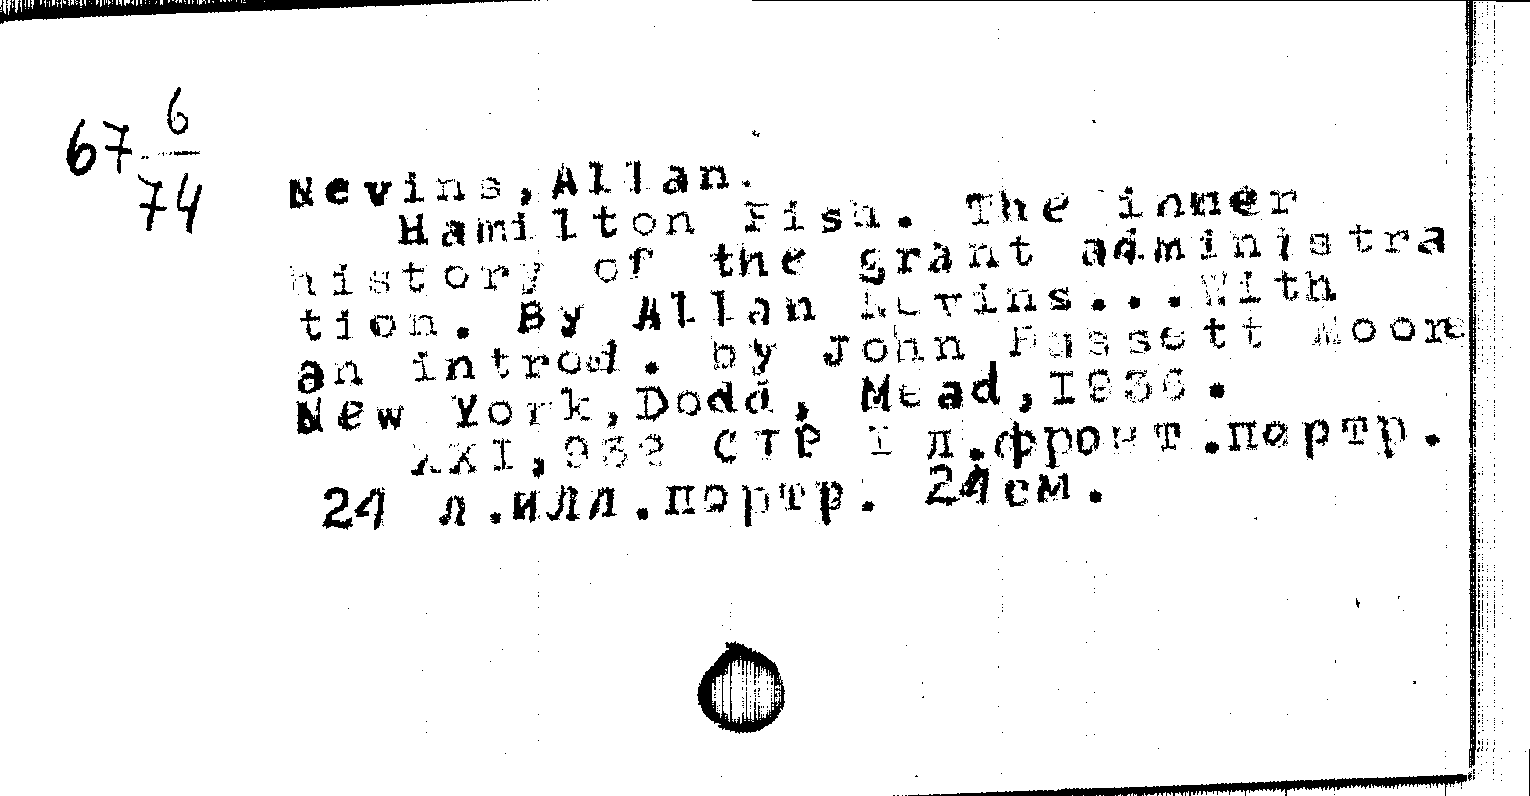 67 6/74
Nevins, Allan.
Hamilton Fish. The inner
history of the grant administra
tion. By Allan Nevins...With
an introd. by John Bassett Moore
New York, Dodd, Mead, I936.
XXI, 932 стр I л.фронт.портр.
24 л.илл.портр. 24см.